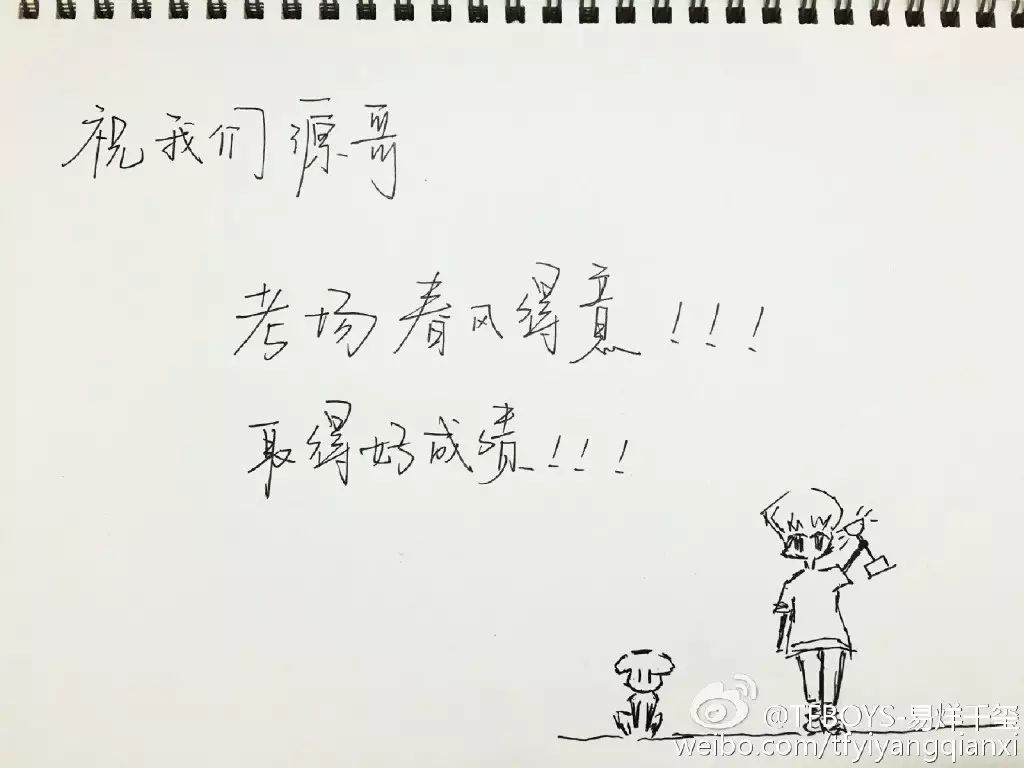 祝我们源哥
考场春风得意!!!
取得好成绩!!!
@TFBOYS-易烊千玺
weibo.com/tfyiyangqianxi